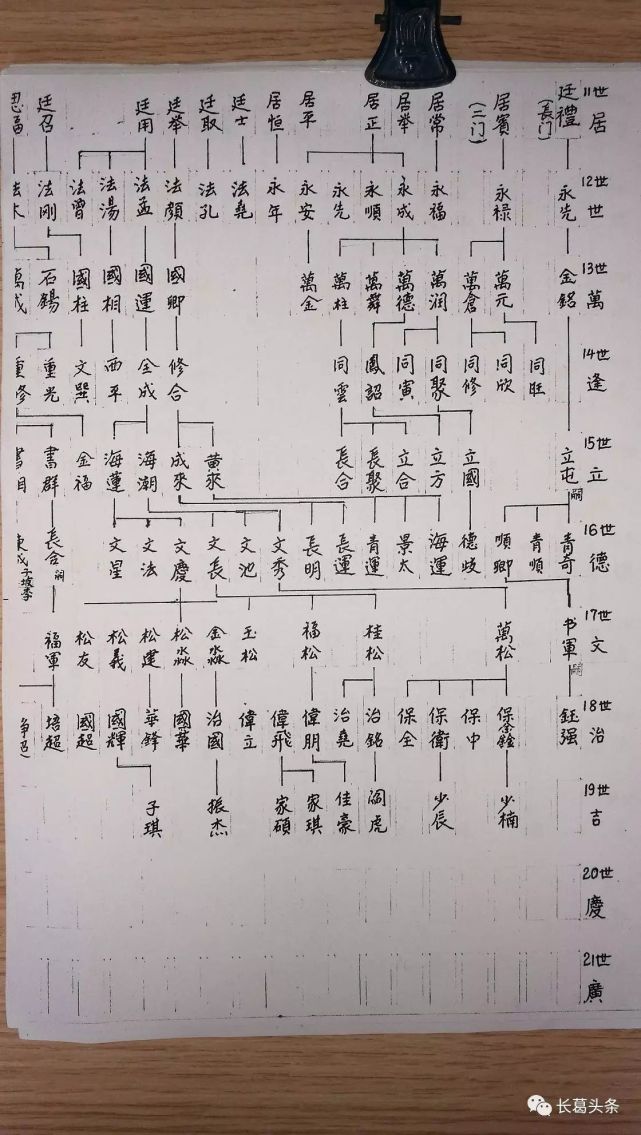 11世 居 廷禮 (長门) 居賓 (二门) 居常 居举 居正 居平 居恒 廷士 廷取 廷举 廷用 廷召
12世 世 永先 永禄 永福 永成 永順 永先 永安 永年 法堯 法孔 法顏 法孟 法湯 法曾 法剛
13世 萬 金銘 萬元 萬倉 萬润 萬德 萬舜 萬柱 萬金 國卿 國運 國相 國柱 石錫 萬成
14世 逢 同旺 同欣 同修 同聚 同寅 鳳詔 同雲 修合 全成 西平 文巽 重光 重修
15世 立 立屯 嗣 立國 立方 立合 長聚 長合 黄來 成來 海潮 海蓮 金福 書群
16世 德 青奇 青順 順卿 德岐 海運 景太 青運 長運 長明 文秀 文池 文長 文慶 文法 文星 長合 嗣
17世 文 书軍 嗣 萬松 桂松 福松 玉松 金淼 松淼 松建 松義 松友 福軍
18世 治 鈺强 保鑫 保中 保衛 保全 治銘 治堯 偉朋 偉飛 偉立 治國 國華 華鋒 國輝 國超 培超
19世 吉 少楠 少辰 阎虎 佳豪 家琪 家碩 振杰 子琪
20世 慶
21世 廣
长葛头条